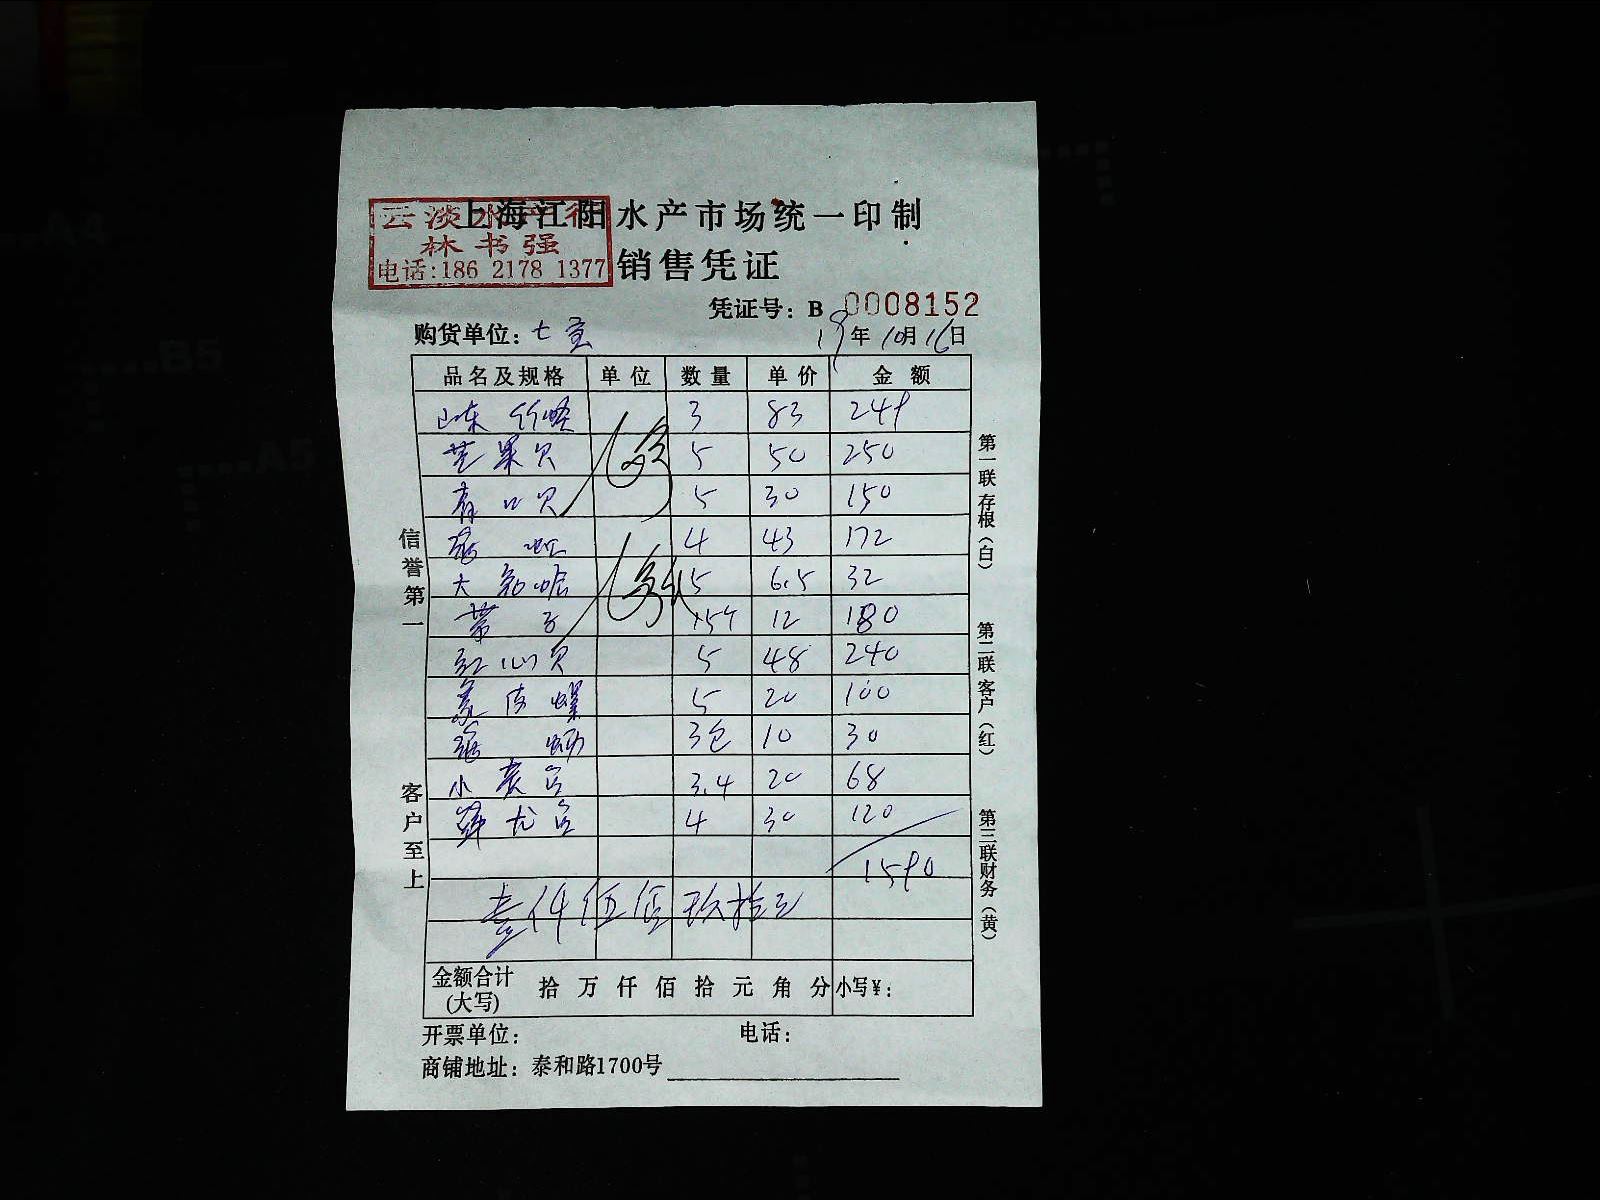 上海江阳水产市场统一印制
云淡水产行
林书强
电话:186 2178 1377
销售凭证
凭证号: B 0008152
购货单位: 七宝
19年10月16日
品名及规格 单位 数量 单价 金额
山东竹蛏 3 83 249
苹果贝 5 50 250
青口贝 5 30 150
4 43 172
大 5 6.5 32
带子 15个 12 180
红心贝 5 48 240
黄油螺 5 20 100
3包 10 30
小 3.4 20 68
4 30 120
1590
壹仟伍佰玖拾元
金额合计(大写) 拾 万 仟 佰 拾 元 角 分 小写¥:
开票单位: 电话:
商铺地址: 泰和路1700号
信誉第一
客户至上
第一联存根(白)
第二联客户(红)
第三联财务(黄)
A4
B5
A5